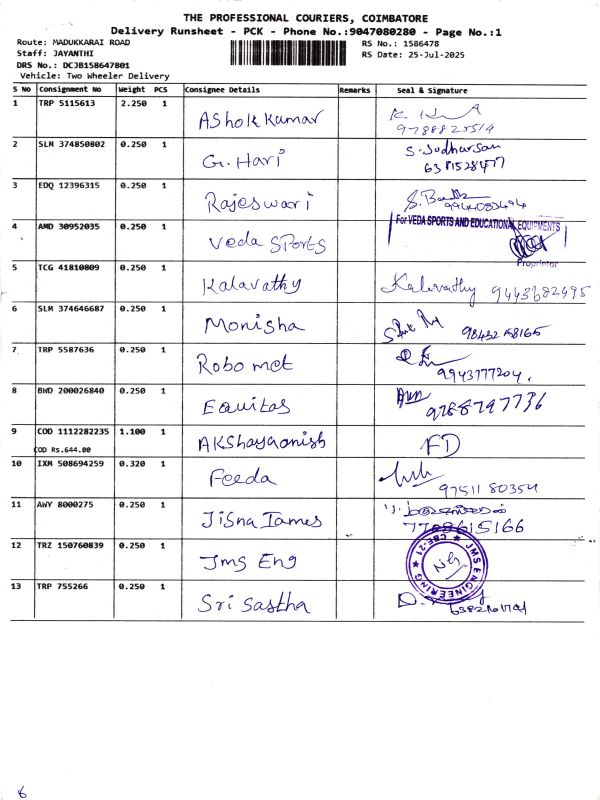 THE PROFESSIONAL COURIERS, COIMBATORE
Delivery Runsheet - PCK - Phone No.:9047080280 - Page No.:1
Route: MADUKKARAI ROAD
RS No.: 1586478
Staff: JAYANTHI
RS Date: 25-Jul-2025
DRS No.: DCJB158647801
Vehicle: Two Wheeler Delivery
S No Consignment No Weight PCS Consignee Details Remarks Seal & Signature
1 TRP 5115613 2.250 1 Ashok kumar
2 SLM 374850802 0.250 1 G. Hari S. Sudharsan
3 EDQ 12396315 0.250 1 Rajeswari
4 AMD 30952035 0.250 1 Veda Sports For VEDA SPORTS AND EDUCATIONAL EQUIPMENTS
Proprietor
5 TCG 41810809 0.250 1 Kalavathy Kalavathy 9443682495
6 SLM 374646687 0.250 1 Monisha
7 TRP 5587636 0.250 1 Robo met
9943777204.
8 BWD 200026840 0.250 1 Equitas
9788797736
9 COD 1112282235 1.100 1 AKShayaanish FD
COD Rs.644.00
10 IXM 508694259 0.320 1 Feeda
97511 80354
11 AWY 8000275 0.250 1 Jisna James
7708615166
12 TRZ 150760839 0.250 1 Jms Eng JMS ENGINEERING CBE-21
13 TRP 755266 0.250 1 Sri Sastha
6